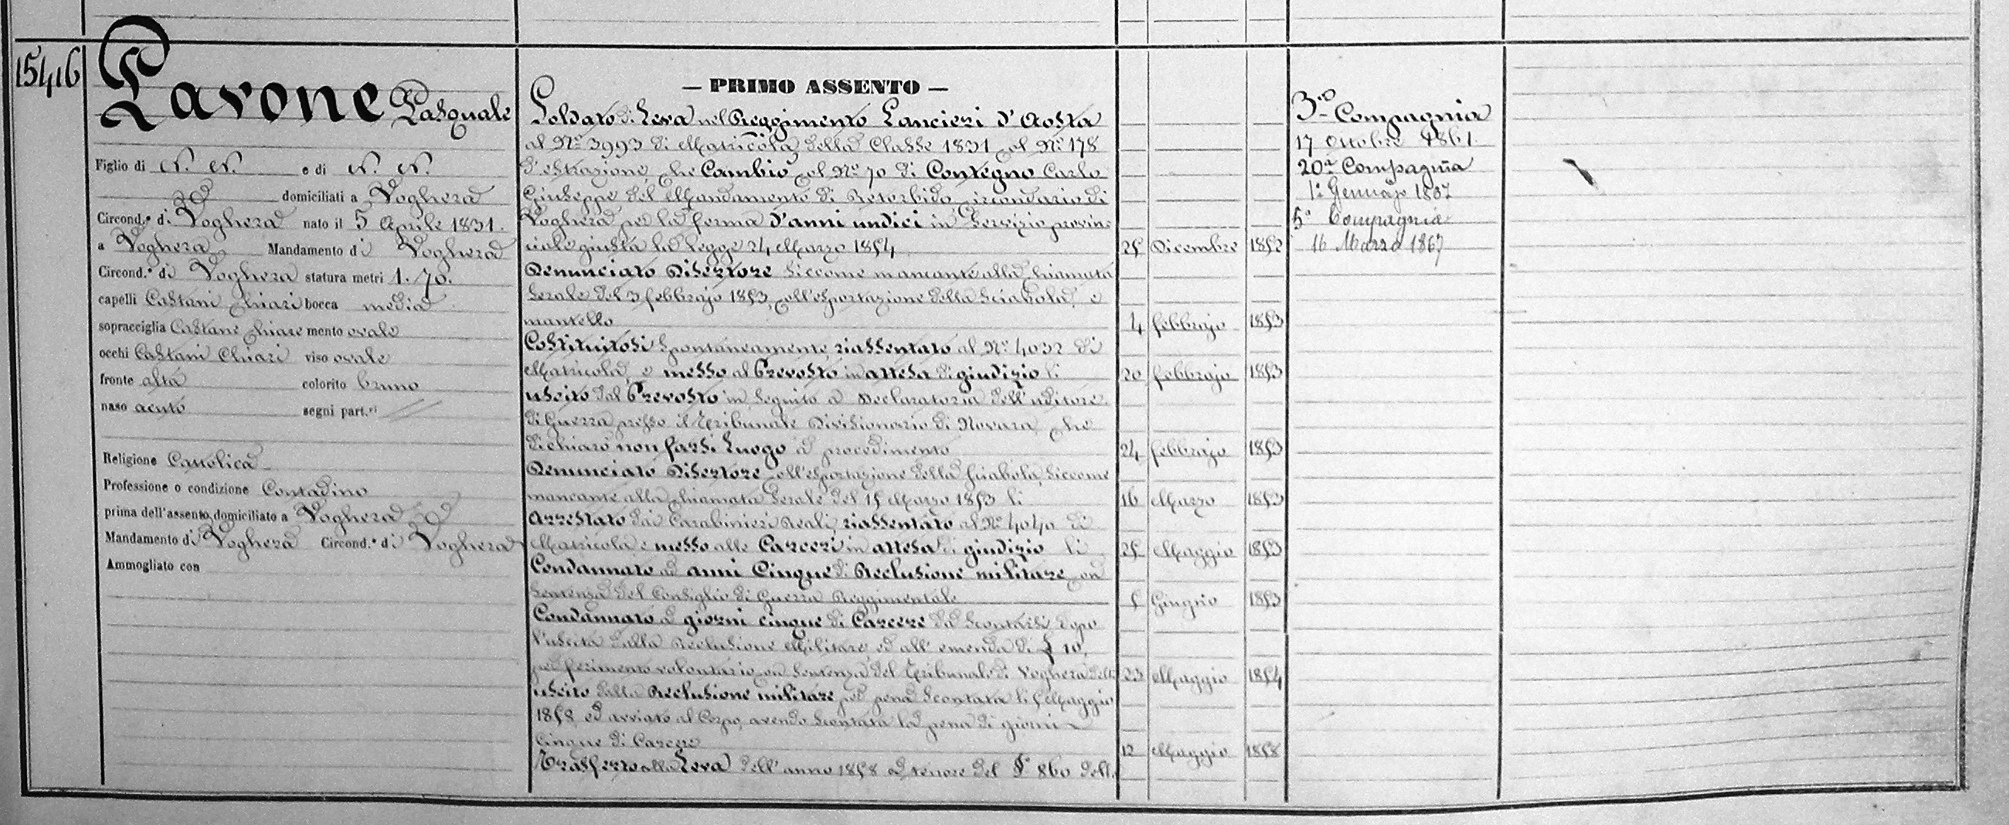 15416
Pavone Pasquale
Figlio di N. N. e di N. N.
domiciliati a Voghera
Circond.º di Voghera nato il 5 Aprile 1831.
a Voghera Mandamento di Voghera
Circond.º di Voghera statura metri 1. 70.
capelli Castani chiari bocca media
sopracciglia Castane chiare mento ovale
occhi Castani Chiari viso ovale
fronte alta colorito bruno
naso acuto segni part.ri
Religione Cattolica
Professione o condizione Contadino
prima dell'assento domiciliato a Voghera
Mandamento di Voghera Circond.º di Voghera
Ammogliato con
— PRIMO ASSENTO —
Soldato di Leva nel Reggimento Lancieri d'Aosta
al Nº 3993 di Matricola della Classe 1831 col Nº 178
d'estrazione che Cambiò col Nº 70 di Contegno Carlo
Giuseppe del Mandamento di Retorbido circondario di
Voghera per la ferma d'anni undici in servizio provin=
ciale giusta la legge 24 Marzo 1854 25 Dicembre 1852
Denunciato Disertore siccome mancante alla chiamata
serale del 3 febbrajo 1853 coll'esportazione della sciabola, e
mantello 4 febbrajo 1853
Costituitosi spontaneamente riassentato al Nº 4032 di
Matricola, e messo al Prevosto in attesa di giudizio li 20 febbrajo 1853
uscito dal Prevosto in seguito a Declaratoria dell'uditore
di Guerra presso il Tribunale Divisionario di Novara che
dichiarò non farsi luogo a procedimento 24 febbrajo 1853
Denunciato Disertore coll'esportazione della sciabola siccome
mancante alla chiamata serale del 15 Marzo 1853 li 16 Marzo 1853
Arrestato dai Carabinieri Reali riassentato al Nº 4040 di
Matricola e messo alle Carceri in attesa di giudizio li 25 Maggio 1853
Condannato ad anni Cinque di Reclusione militare con
sentenza del Consiglio di Guerra Reggimentale 5 Giugno 1853
Condannato a giorni cinque di Carcere da scontarsi dopo
l'uscita dalla Reclusione Militare ed all'emenda di £ 10
per ferimento volontario con sentenza del Tribunale di Voghera delli 23 Maggio 1854
uscito dalla Reclusione militare per pena scontata li 5 Maggio
1858 ed avviato al Corpo, avendo scontata la pena di giorni
cinque di Carcere 12 Maggio 1858
Trasferto alla Leva dell'anno 1858 a tenore del §º 860 dell
3ª Compagnia
17 Ottobre 1861
20ª Compagnia
1º Gennajo 1867
5ª Compagnia
16 Marzo 1867